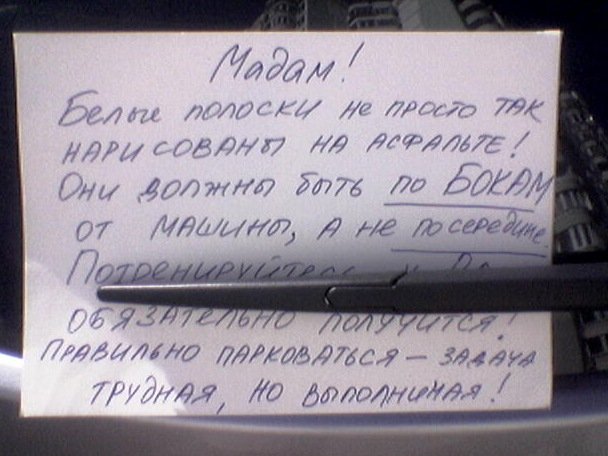 Мадам!
Белые полоски не просто так
нарисованы на асфальте!
Они должны быть по БОКАМ
от машины, а не посередине.
Потренируйтесь и
обязательно получится!
Правильно парковаться – задача
трудная, но выполнимая!